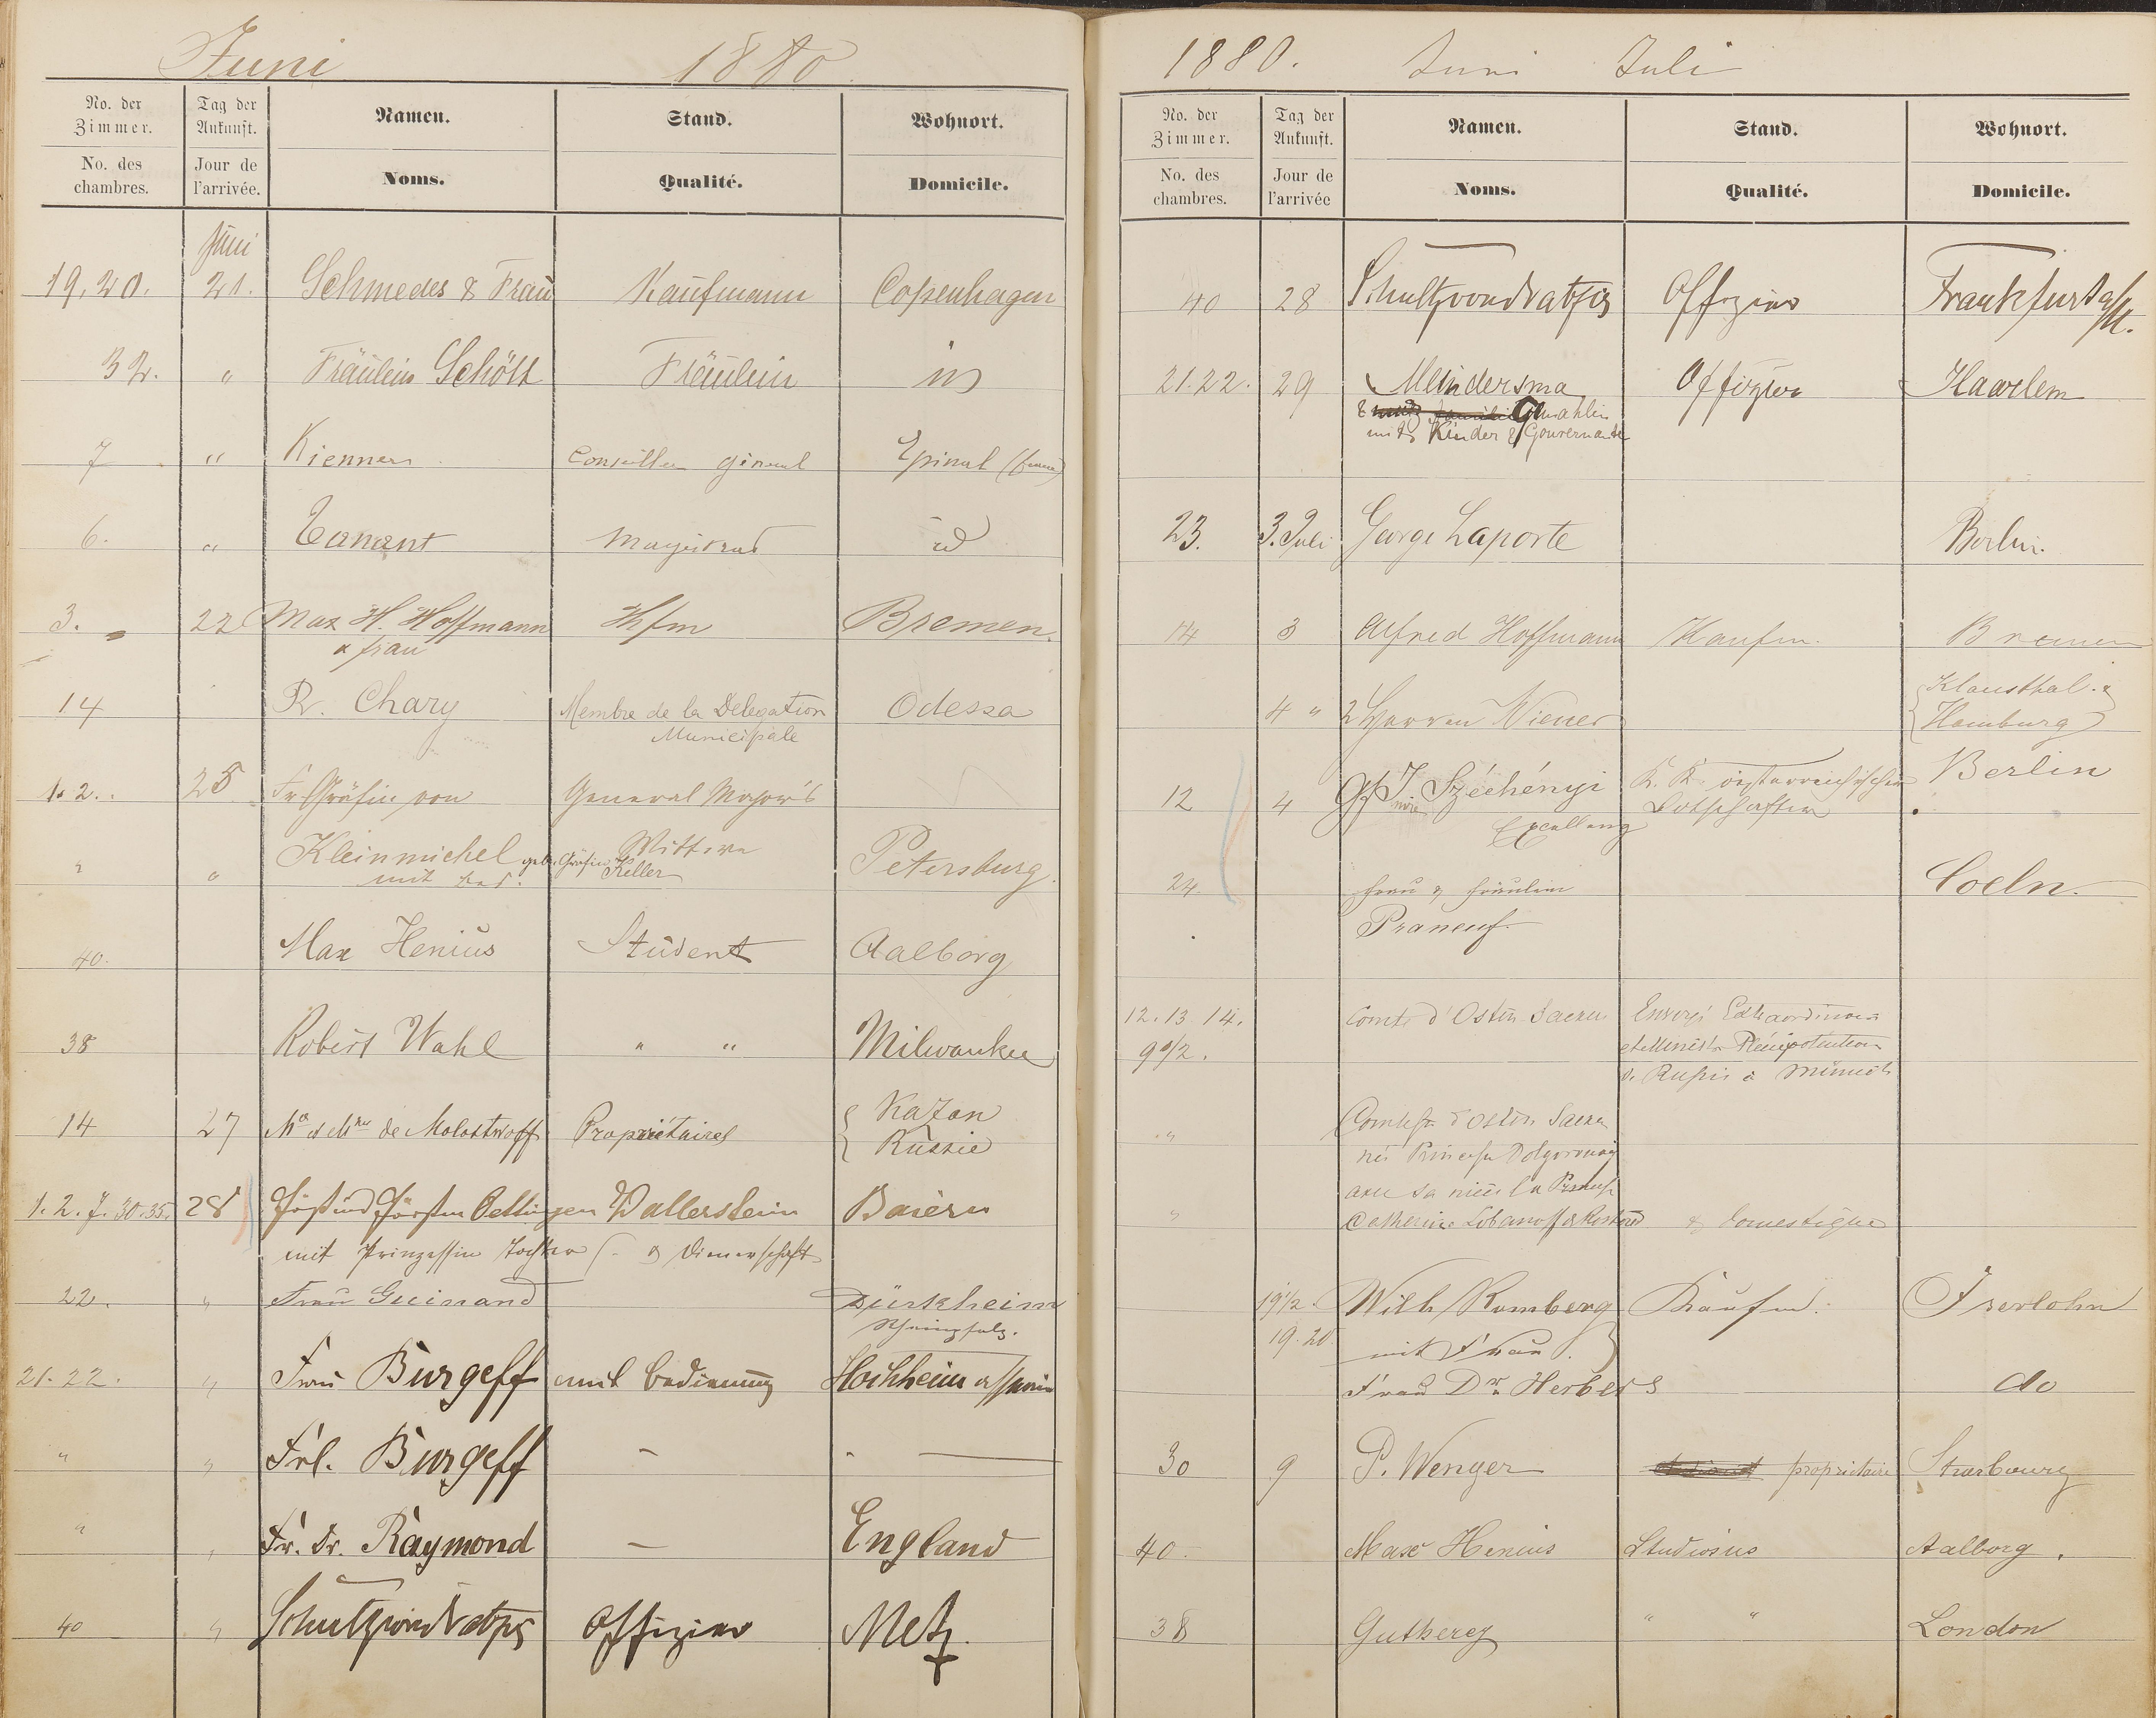 Juni 1880
No. der Zimmer. Tag der Ankunft. Namen. Stand. Wohnort.
No. des chambres. Jour de l'arrivée. Noms. Qualité. Domicile.
Juni
19, 20. 21. Schmedes & Frau Kaufmann Copenhagen
32. " Fräulein Schött Fräulein
7 " Kienner Conseiller général Epinal
6. " Tanant Magistrat id
3. 22 Max H. Hoffmann Kfm Bremen.
& frau
14 R. Chary Membre de la Delegation Odessa
Municipale
1. 2. 25 Fr. Gräfin von General Major's
" " Kleinmichel geb. Gräfin Keller Wittwe Petersburg.
mit bed.
40. Max Henius Student Aalborg
38 Robert Wahl " " Milwaukee
14 27 Mr et Mme de Molostwoff Propriétaires Kazan
Russie
1. 2. 7. 30. 35. 28 Fürst und Fürstin Oettingen Wallerstein Baiern
mit Prinzessin Tochter & Dienerschaft
22. " Frau Guinand Dürkheim
Rheinpfalz.
21. 22. " Frau Burgeff mit Bedienung Hochheim a/Main
" " Frl. Burgeff - -
" " Fr. Dr. Raymond - England
40 " Offizier Metz.
1880. Juni Juli
No. der Zimmer. Tag der Ankunft. Namen. Stand. Wohnort.
No. des chambres. Jour de l'arrivée Noms. Qualité. Domicile.
40 28 Offizier Frankfurt a/M.
21. 22. 29 Meindersma Offizier Haarlem
& Gemahlin
mit Kinder & Gouvernante
23. 3. Juli George Laporte Berlin.
14 3 Alfred Hoffmann Kaufm. Bremen
4 " 2 Herren Wiener Klausthal &
Hamburg
12 4 Gf. Széchényi K. K. österreichischer Berlin
Excellenz Botschafter
24 Frau & Fräulein Coeln.
Praneuf
12. 13 14. Comte d'Osten Sacken Envoyé Extraordinaire
9 1/2. et Ministre Plénipotentiaire
de Russie à Munich
" Comtesse d'Osten Sacken
née Princesse Dolgorouky
avec sa nièce la Princesse
" Catherine Lobanoff de Rostoff & domestique
19 1/2. Wilh Romberg Kaufm. Iserlohn
19. 20 mit Frau.
Frau Dr. Herbers do
30 9 P. Wenger propriétaire Strasbourg
40. Max Henius Studiosus Aalborg.
38 Gutberg " " London